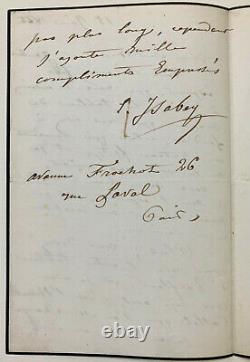 pas plus long, cependant
j'ajoute mille
compliments Empressés
E Isabey
avenue Frochot 26
rue Laval
Paris,